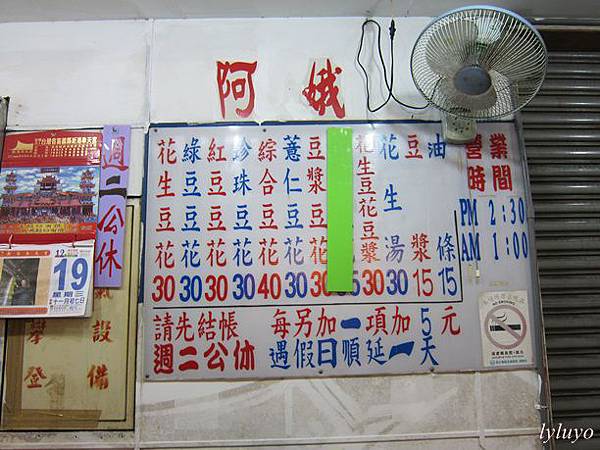 阿娥
花生豆花 30
綠豆豆花 30
紅豆豆花 30
珍珠豆花 30
綜合豆花 40
薏仁豆花 30
豆漿豆花 30
花生豆花豆漿 30
花生湯 30
豆漿 15
油條 15
營業
時間
PM 2:30
AM 1:00
請先結帳 每另加一項加5元
週二公休 遇假日順延一天
週二公休
12
19
星期三
十一月初七日
設備
攀登
lyluyo